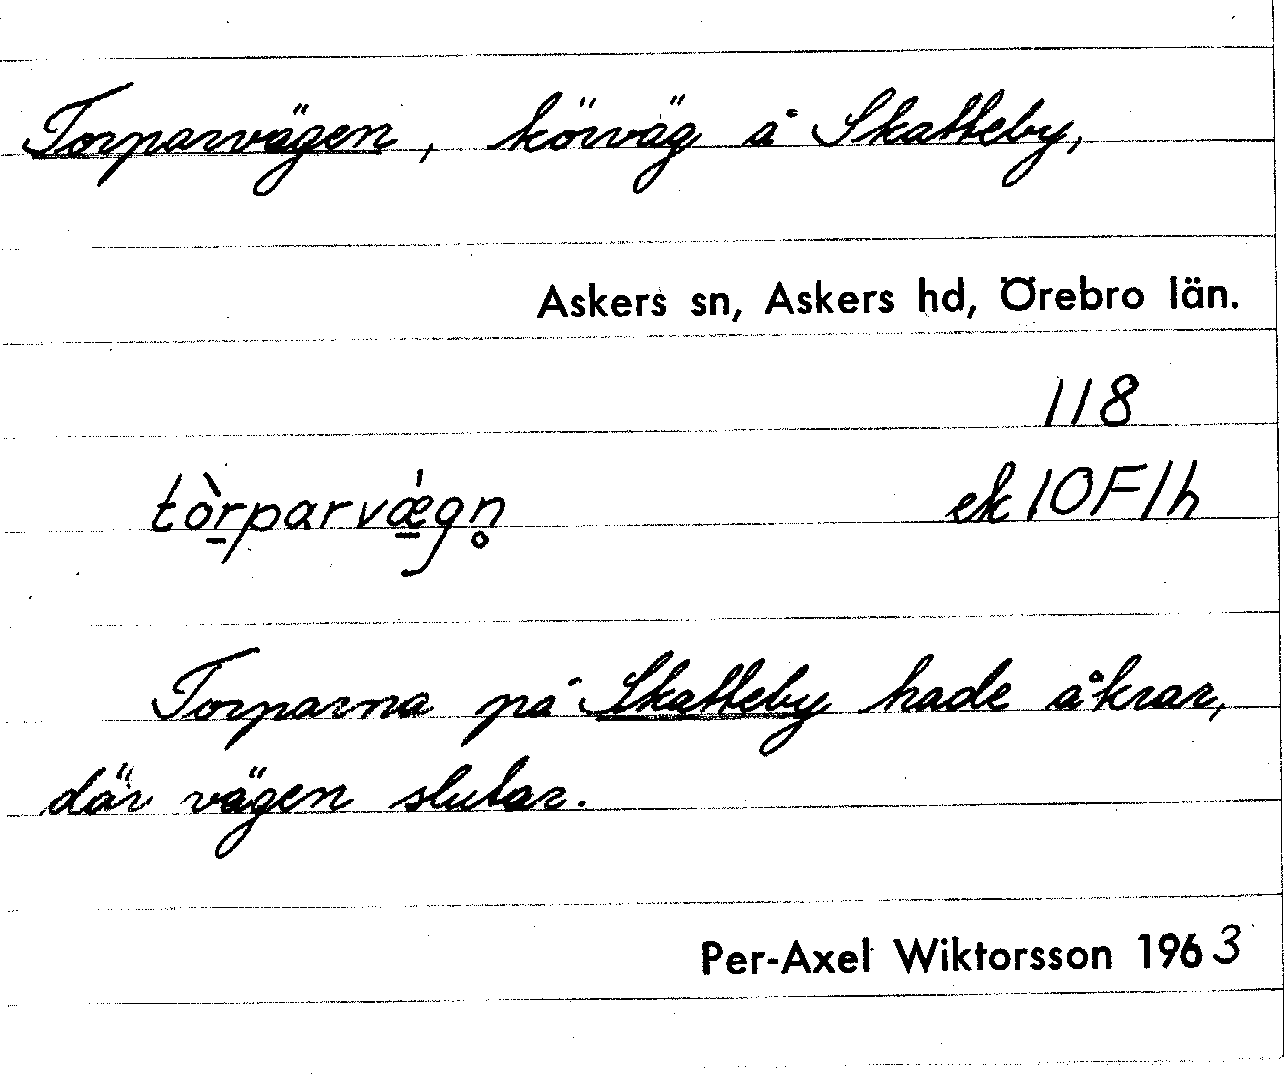 Torparvägen, körväg å Skatteby,
Askers sn, Askers hd, Örebro län.
118
tò̱rparvǽ̱gn̥ ek 10F1h
Torparna på Skatteby hade åkrar,
där vägen slutar.
Per-Axel Wiktorsson 1963